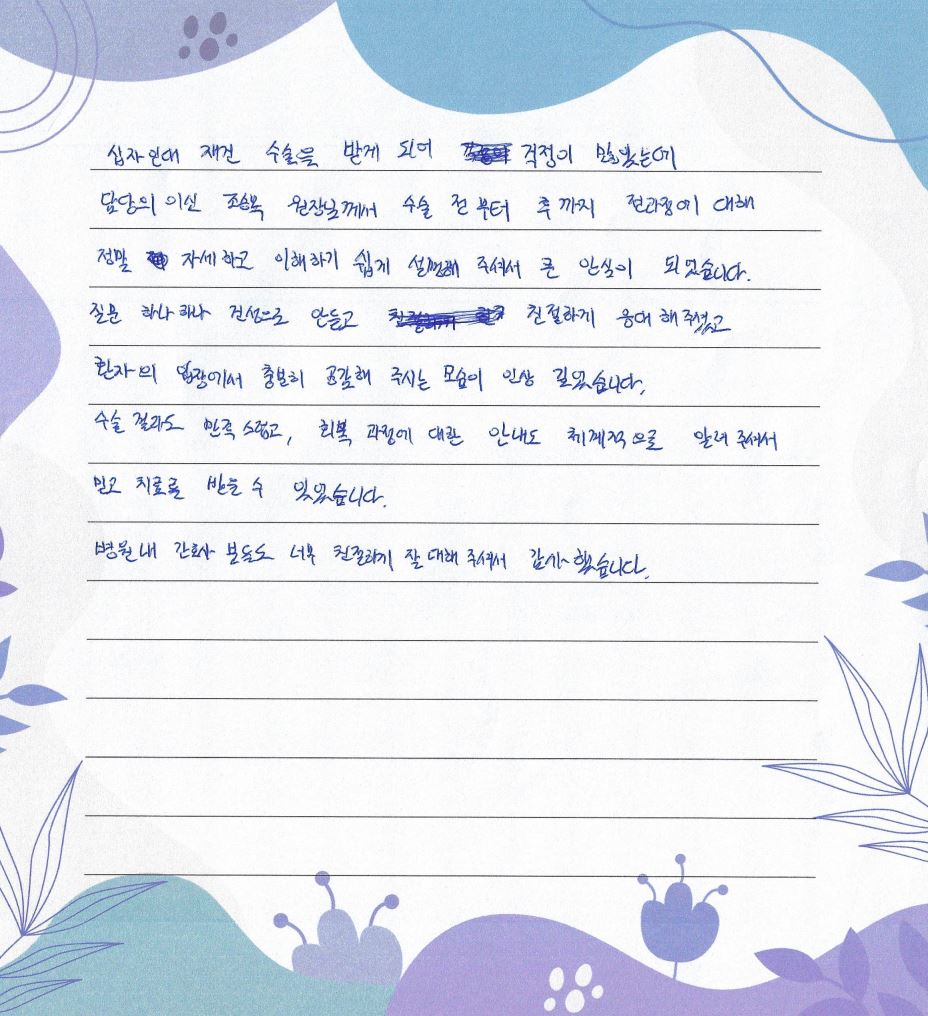 십자인대 재건 수술을 받게 되어 걱정이 많았는데
담당의 이신 조승목 원장님께서 수술 전부터 후까지 전과정에 대해
정말 자세하고 이해하기 쉽게 설명해 주셔서 큰 안심이 되었습니다.
질문 하나하나 진심으로 만들고 친절하게 응대 해주셨고
환자의 입장에서 충분히 공감해 주시는 모습이 인상 깊었습니다.
수술 결과도 만족 스럽고, 회복 과정에 대한 안내도 체계적으로 알려 주셔서
믿고 치료를 받을 수 있었습니다.
병원내 간호사 분들도 너무 친절하게 잘 대해 주셔서 감사 했습니다.